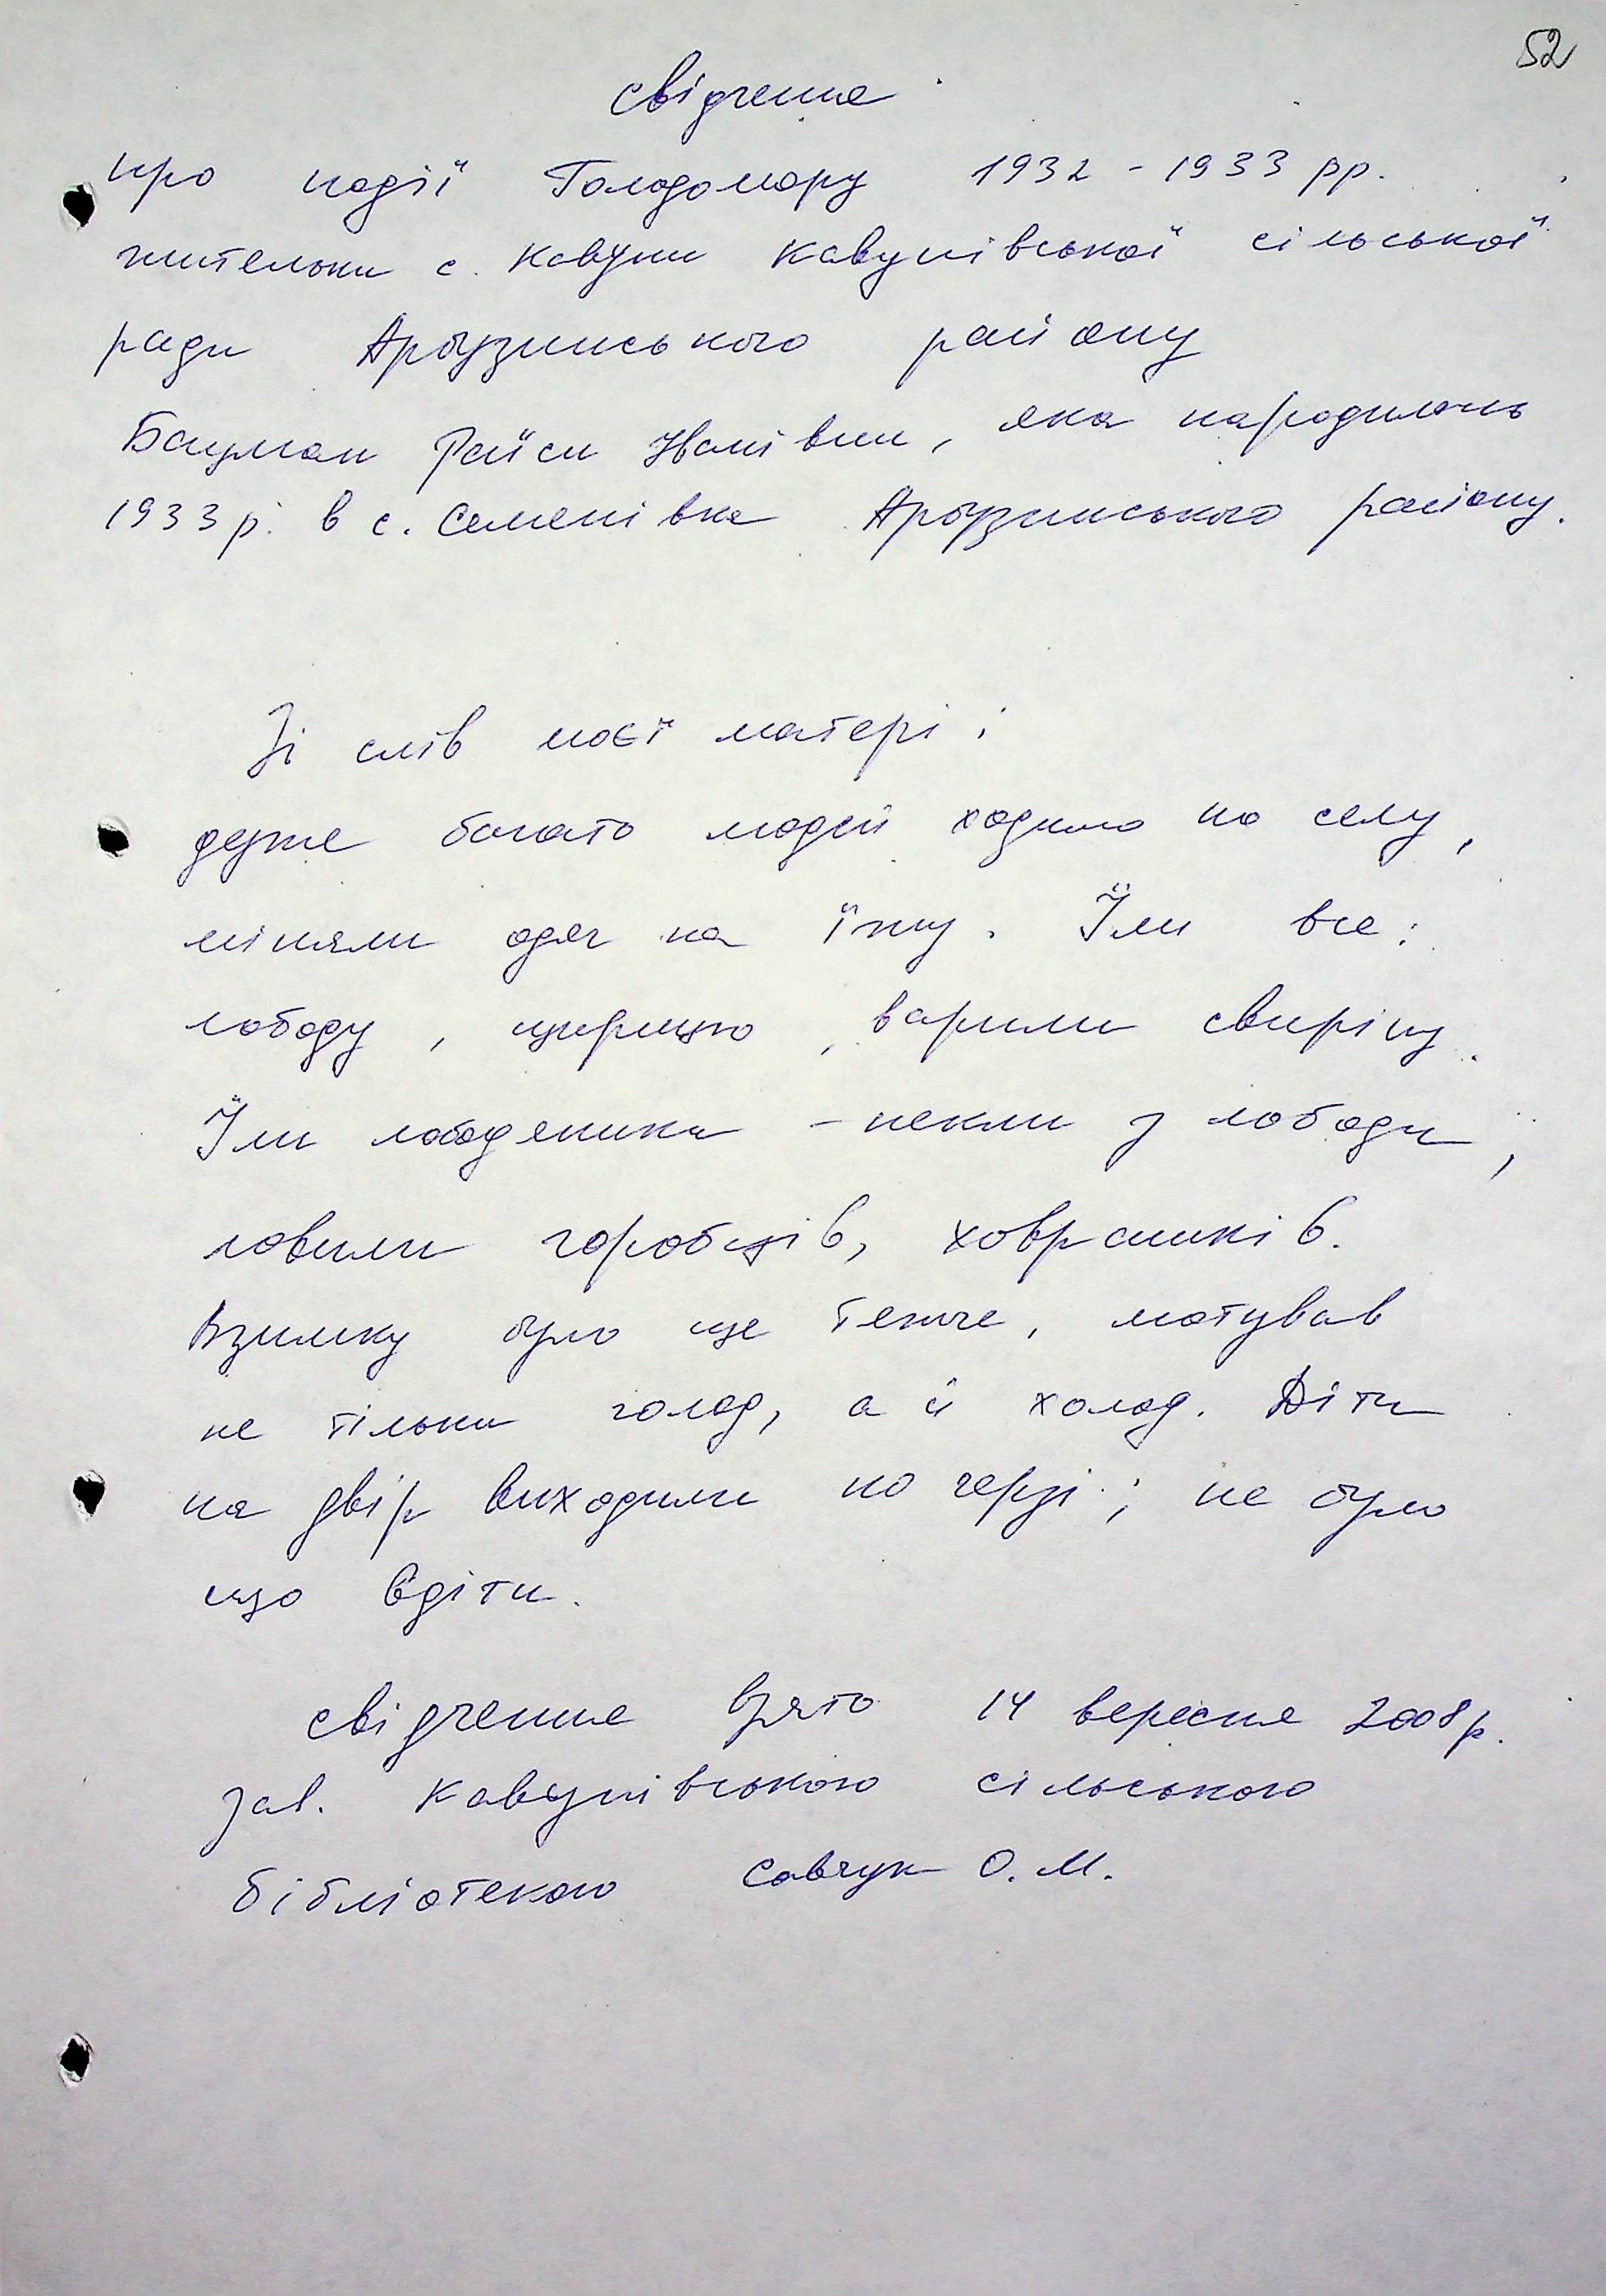 52
свідчення
про події Голодомору 1932 - 1933 рр.
жительки с. Кавуни Кавунівської сільської
ради Арбузинського району
Бауман Раїси Іванівни, яка народилась
1933 р. в с. Семенівка Арбузинського району.
Зі слів моєї матері:
дуже багато людей ходило по селу,
міняли одяг на їжу. Їли все:
лободу, щирицю, варили свиріпу.
Їли лободяники - пекли з лободи,
ловили горобців, ховрашків.
Взимку було ще тяжче, мотував
не тільки голод, а й холод. Діти
на двір виходили по черзі; не було
що вдіти.
свідчення взято 14 вересня 2008 р.
зав. Кавунівською сільською
бібліотекою Савчук О. М.